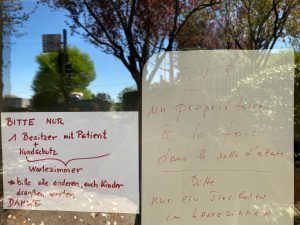 BITTE NUR
1 Besitzer mit Patient
+
Mundschutz
Wartezimmer
→ bitte alle anderen, auch Kinder
draußen warten
DANKE
SVP
un propriétaire
à la fois
dans la salle d'attente
Bitte
nur ein Tierhalter
im Wartezimmer